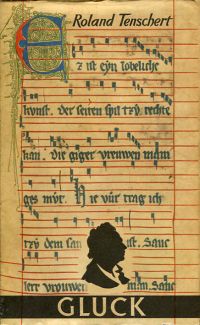 Roland Tenschert
z ist eyn lobeliche
kunst. der seiten spil tzv rechte
kan. die giger vreuwen mani
ges mvt. Hie vür trag ich
tzv dem san ist. Sanc
leret vrouwen man. Sanc
GLUCK